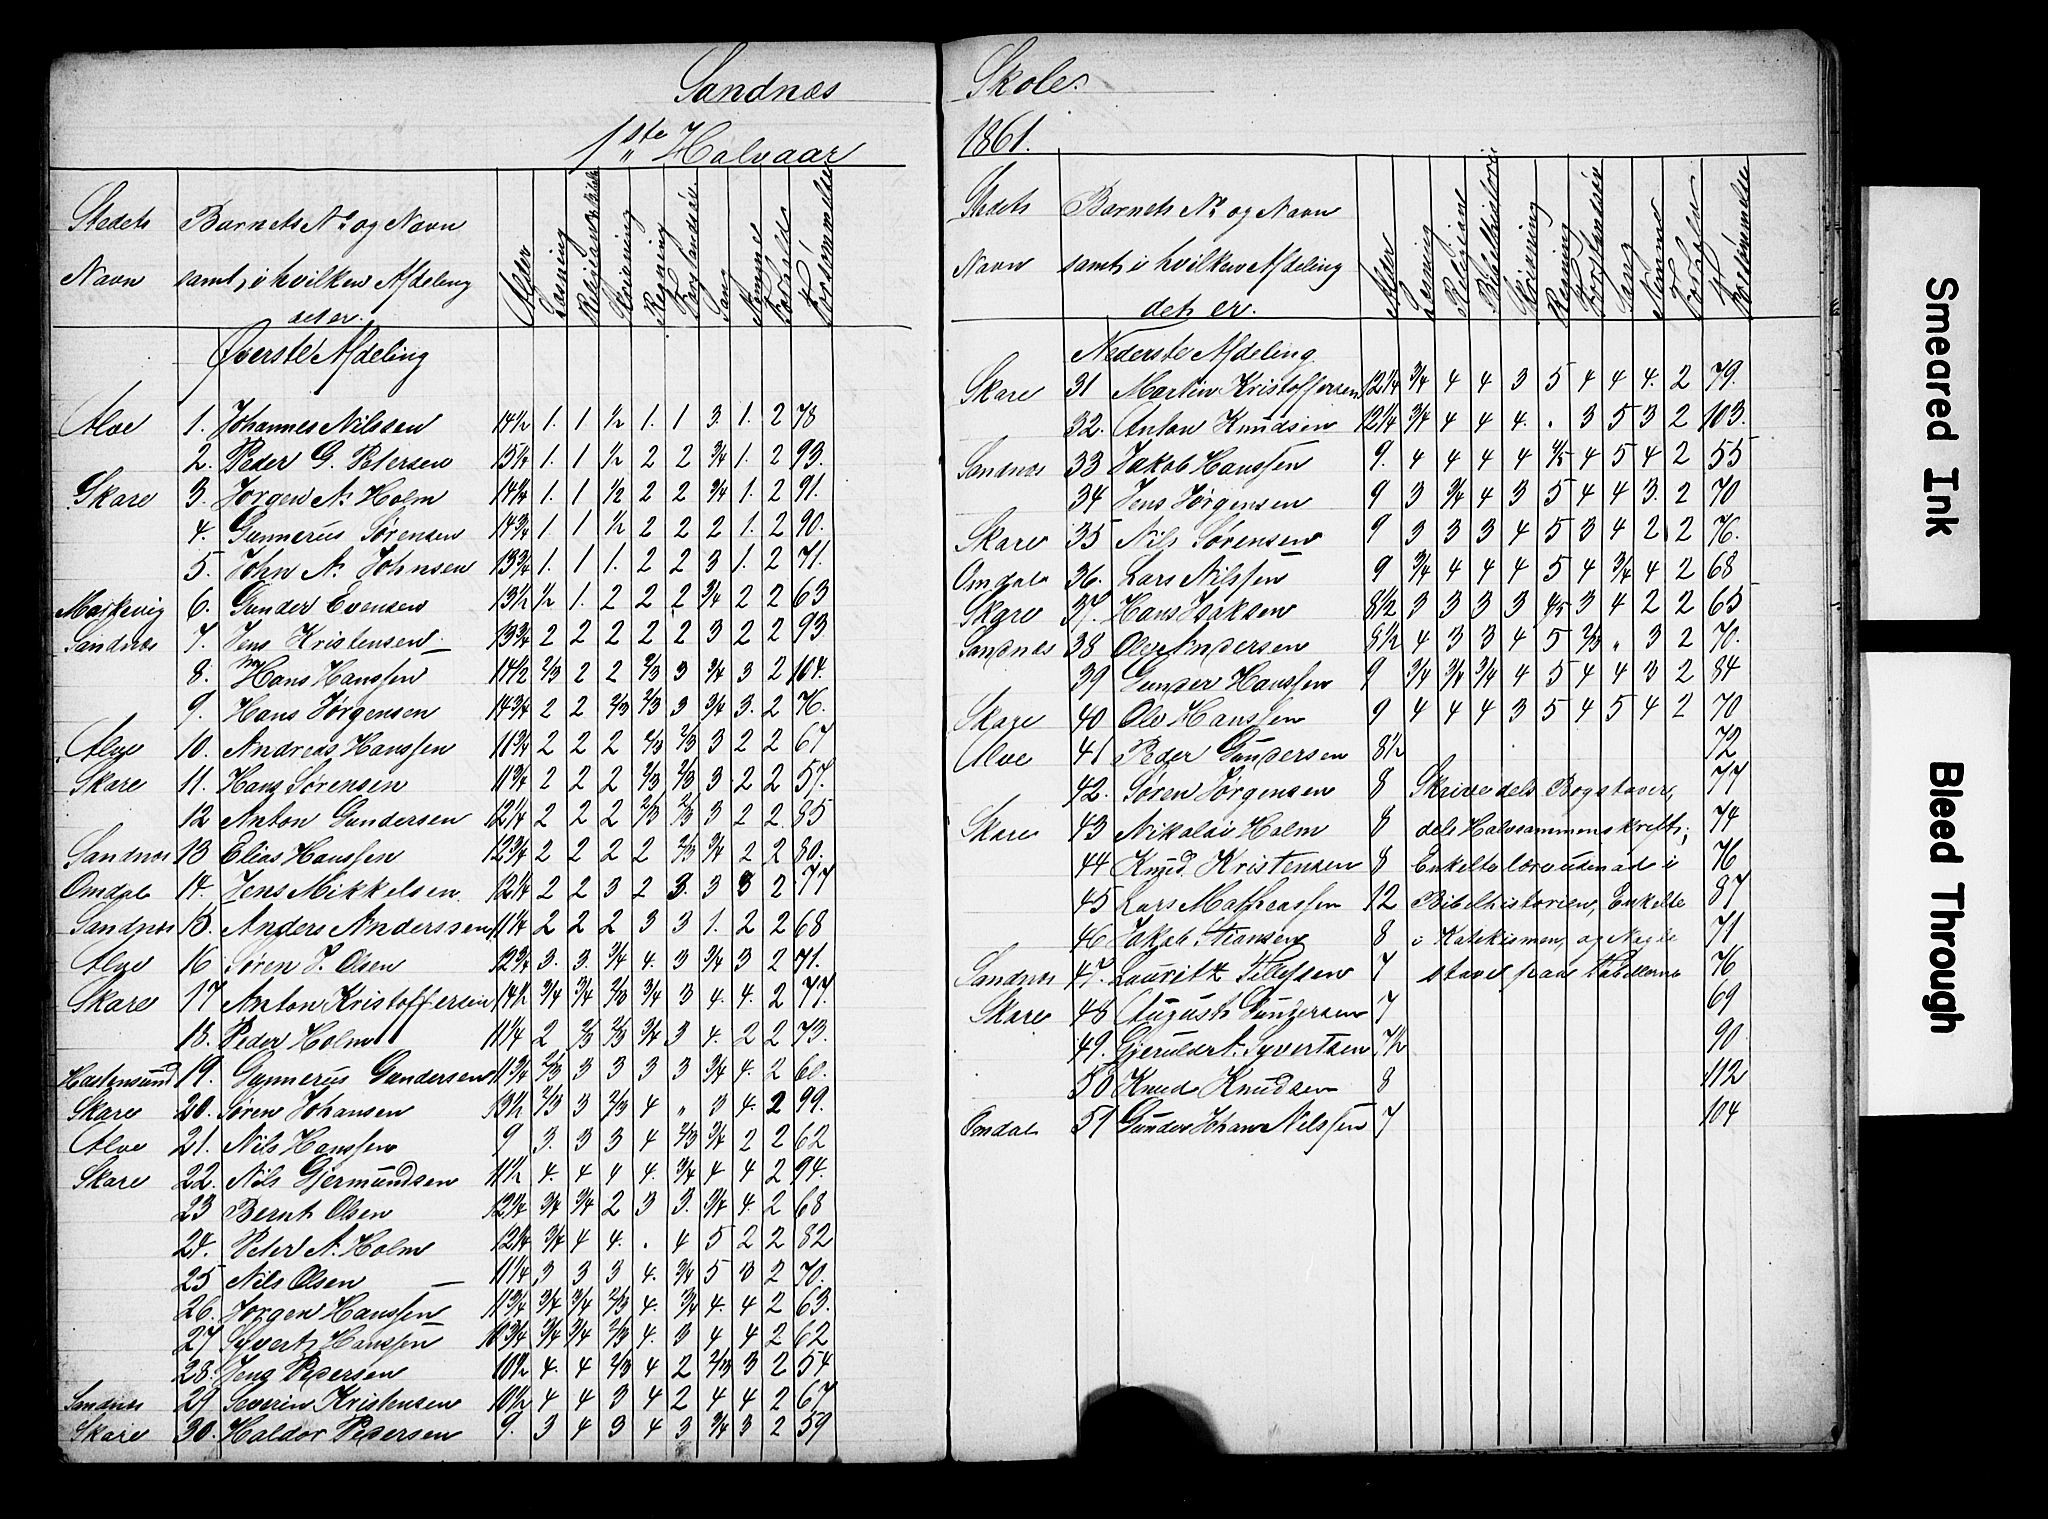 Sandnæs
1ste Halvaar
Stedets Barnets No og Navn
Navn samt i hvilken Afdeling
det er.
Alder Læsning Religion Skrivning Regning Forstandsøv Sang Nemme Forhold Forsømmelse
Øverste Afdeling
Alve 1. Johannes Nilssen 14½ 1. 1 ½ 1. 1 3. 1. 2 78
2. Peder G. Petersen 15¼ 1. 1 ½ 2 2 ¾ 1. 2 93.
Skare 3. Jørgen A. Holm 14¼ 1. 1 ½ 2 2 ¾ 1. 2 91.
4. Gunnerus Sørensen 14¾ 1 1 ½ 2 2 2 1. 2 90.
5. John A. Johnsen 13¾ 1. 1 1. 2 2 3 1. 2 71.
Markevig 6. Gunder Evensen 13½ ½ 1. 2 2 2 ¾ 2 2 63
Sandnæs 7. Jens Kristensen 13¾ 2 2 2 2 2 3 2 2 93
8. Hans Hanssen 14½ 2/3 2 2 2/3 3 ¾ 3 2 104.
9. Hans Jørgensen 14¾ 2 2 2/3 2/3 3 ¾ 3. 2 76.
Alve 10. Andreas Hanssen 11¾ 2 2 2 2/3 2/3 3 2 2 67
Skare 11. Hans Sørensen 11¾ 2 2 2 2/3 2/3 3 2 2 57.
12 Anton Gundersen 12¼ 2 2 2 2/3 2/3 3 2 2 85
Sandnæs 13 Elias Hanssen 12¾ 2 2 2 2 2/3 ¾ 2 2 80.
Omdal 14. Jens Mikkelsen 12¼ 2 2 3 2 3. 3 3 2 77
Sandnæs 15. Anders Anderssen 11¼ 2 2 2 3 3 1. 2 2 68
Alve 16 Søren J. Olsen 12¾ 3. 3. ¾ 4. 3 ¾ 3 2 71.
Skare 17 Anton Kristoffersen 14½ ¾ ¾ 2/3 ¾ 3 4. 4. 2 77.
18. Peder Holm 11¼ 2 2/3 2/3 ¾ 3 4. 2 2 73.
19. Gunnerus Gundersen 11¾ 2/3 3 3 3 3 ¾ 4. 2 60.
Skare 20. Søren Johansen 13½ 2/3 3 2/3 4 „ 3 4. 2 99.
Alve 21. Nils Hanssen 9 3. 3 3 4 2/3 ¾ 2 2 62
Skare 22. Nils Gjermundsen 11½ 4. 4 4 4. ¾ 4 4 2 94.
23 Bernt Olsen 12¼ ¾ ¾ 2 3 3. ¾ 4. 2 68
24. Peter A. Holm 12¼ ¾ 4 4. . 4 5 2 2 82
25 Nils Olsen 11¼ 3 3 3 4. ¾ 5 3 2 70.
26. Jørgen Hanssen 11¾ ¾ ¾ 2/3 4. ¾ 4. 4 2 63.
27 Syvert Hanssen 10¾ ¾ ¾ 2/3 4. 3 4 4 2 62
28. Jens Pedersen 10½ 4. 4 2/3 4 2 2/3 3 2 54
Sandnæs 29 Severin Kristensen 10½ 4 4 3 4 2 4 4 2 67
Skare 30. Haldor Pedersen 9. 3 4 3 4 3 ¾ 3 2 59
Skole.
1861.
Stedets Barnets No og Navn
Navn samt i hvilken Afdeling
det er.
Alder Læsning Religion Bibelhistorie Skrivning Regning Forstandsøv Sang Nemme Forhold Forsømmelse
Nederste Afdeling
Skare 31 Martin Kristoffersen 12¼ ¾ 4 4 3 5 4 4 4. 2 79.
32. Anton Knudsen 12¼ ¾ 4 4 4. . 3 5 3 2 103.
Sandnæs 33 Jakob Hanssen 9. 4 4 4 4 4/5 4 5 4 2 55
34 Jens Jørgensen 9 3 ¾ 4 3 5 4 4 3. 2 70
Skare 35 Nils Sørensen 9 3 3 3 4 5 3 4 2 2 76.
Omdal 36. Lars Nilssen 9 ¾ 4 4 4 5 4 ¾ 4 2 68
Skare 37. Hans Isaksen 8½ 3 3 3 3 4/5 3 4 2 2 65
Sandnæs 38 Ole Andersen 8½ 4 3 3 4 5 2/3 „ 3 2 70.
39 Gunder Hanssen 9 ¾ ¾ ¾ 4 5 4 4 3 2 84
Skare 40 Ole Hanssen 9 4 4 4 3 5 4 5 4 2 70
Alve 41 Peder Gundersen 8½ 72
42. Søren Jørgensen 8 Skrive dels Bogstaver, 77
Skare 43 Nikolai Holm 8 dels Halvsammenskrift; 74
44 Knud Kristensen 8 Enkelte lære udenad i 76
45 Lars Matheassen 12 Bibelhistorien, Enkelte 87
46 Jakob Hansen 8 i Katekismen, og Nogle 71
Sandnæs 47. Lauritz Tellefsen 7 stave paa Tabellerne 76
Skare 48 August Gundersen 7 69
49. Gjeruldt A. Syvertsen 7½ 90
50 Knud Knudsen 8 112
Omdal 51 Gunder Johan Nilssen 7 104
Smeared Ink
Bleed Through